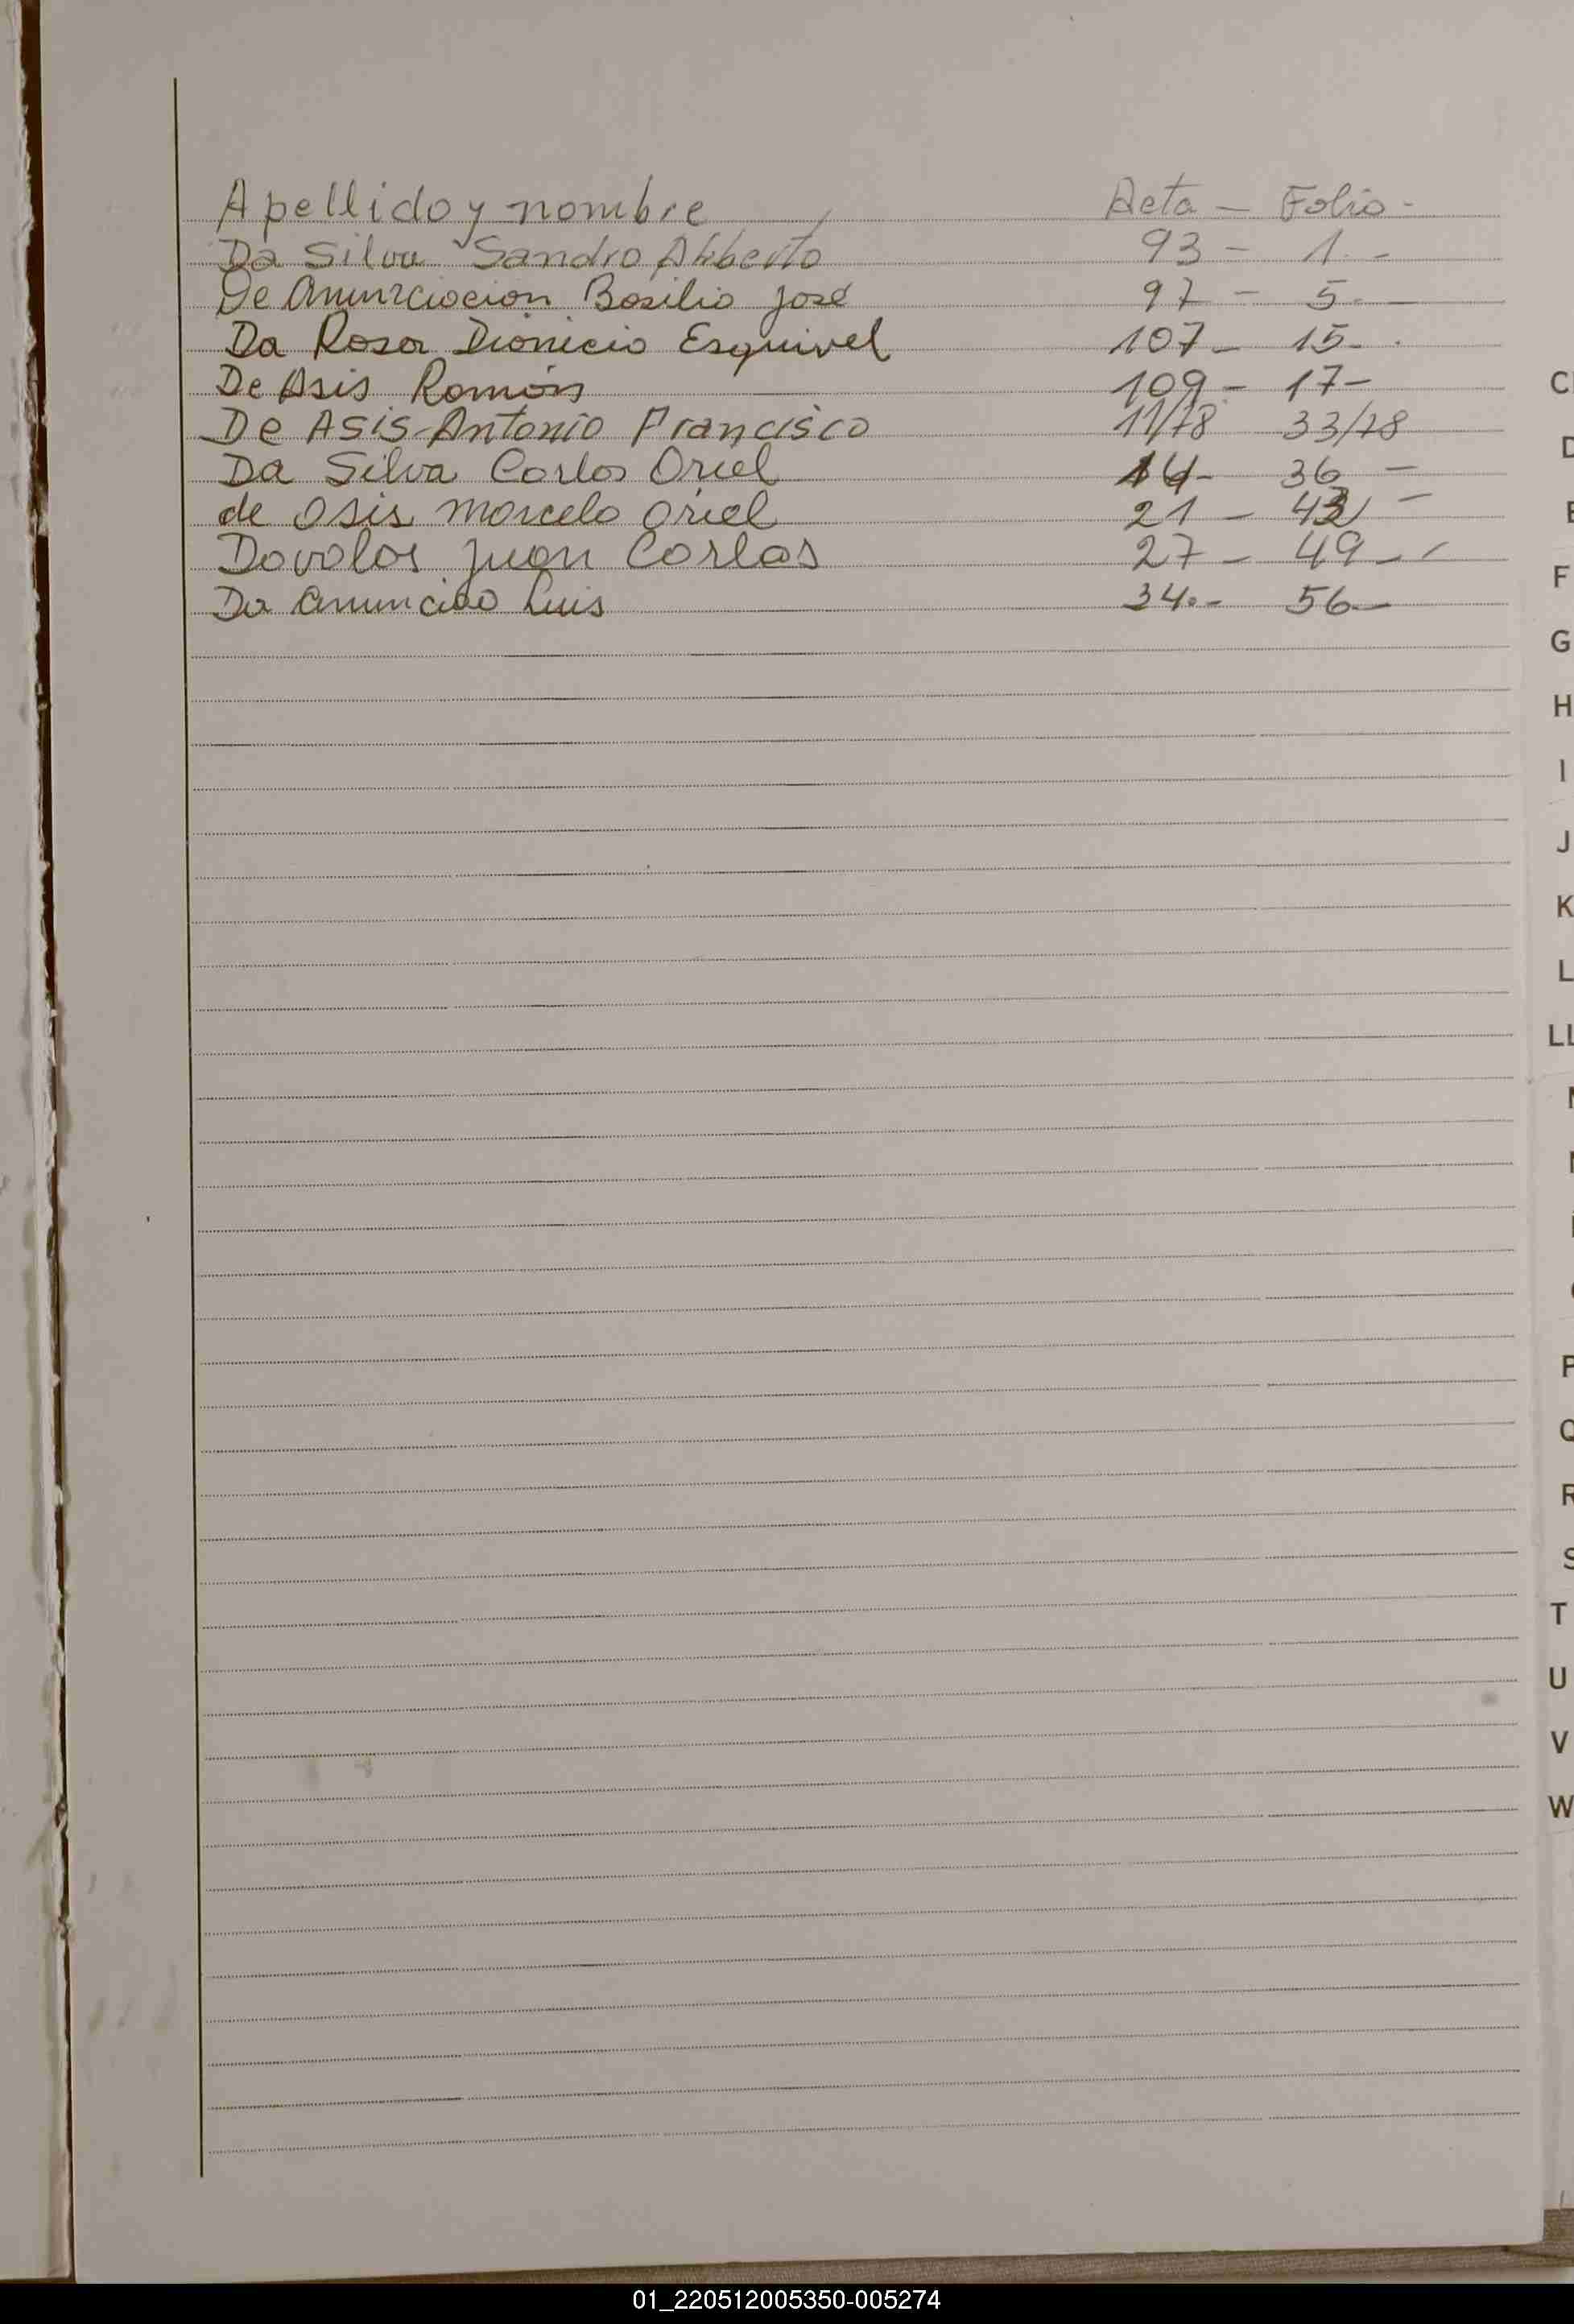 Apellido y nombre Acta - Folio -
Da Silva Sandro Aliberto 93 - 1. -
De Anunciacion Basilio José 97 - 5. -
Da Rosa Dionicio Esquivel 107 - 15 - .
De Asis Ramón 109 - 17 -
De Asis Antonio Francisco 11/78 33/78
Da Silva Carlos Oriel 14 - 36 -
de Asis Marcelo Oriel 21 - 43 -
Davalos Juan Carlos 27 - 49 - -
Da Anunciao Luis 34. - 56 -
D
F
G
H
I
J
K
L
LL
P
Q
R
S
T
U
V
W
01_220512005350-005274